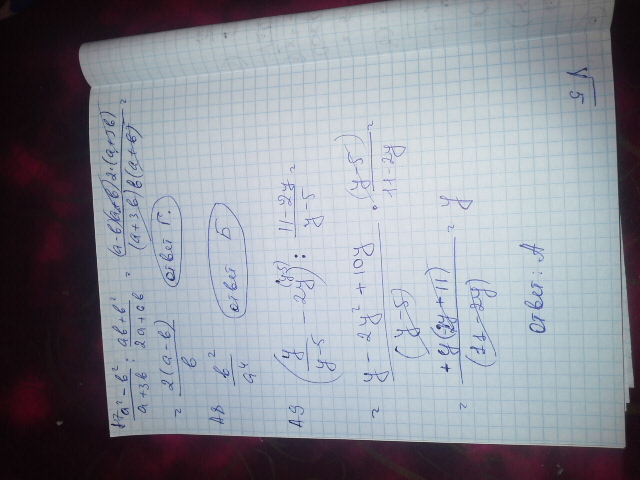 A7 (a² - b²)/(a+3b) : (ab+b²)/(2a+6b) = (a-b)(a+b)2·(a+3b)/(a+3b)b(a+b) =
= 2(a-b)/b ответ Г.
A8 b²/a⁴ ответ Б
A9 (y/(y-5) - 2y) : (11-2y)/(y-5) =
= (y - 2y² + 10y)/(y-5) · (y-5)/(11-2y) =
= +y(2y+11)/(11-2y) = y
Ответ: А
√5